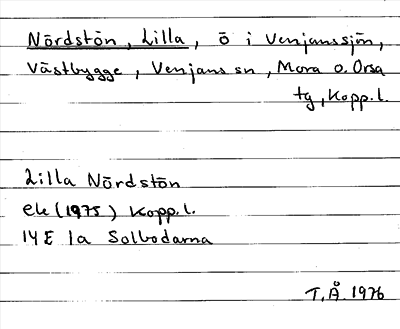 Nördstön, Lilla, ö i Venjanssjön,
Västbygge, Venjans sn, Mora o. Orsa
tg, Kopp.l.
Lilla Nördstön
ek (1975) Kopp.l.
14E 1a Solbodarna
T.Å. 1976